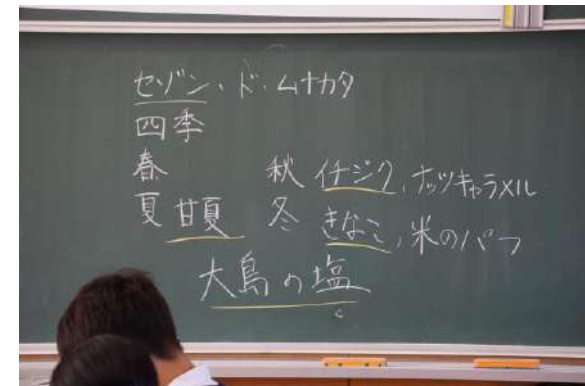 セゾン・ド・ムナカタ
四季
春 秋 イチジク,ナッツキャラメル
夏 甘夏 冬 きなこ,米のパフ
大島の塩